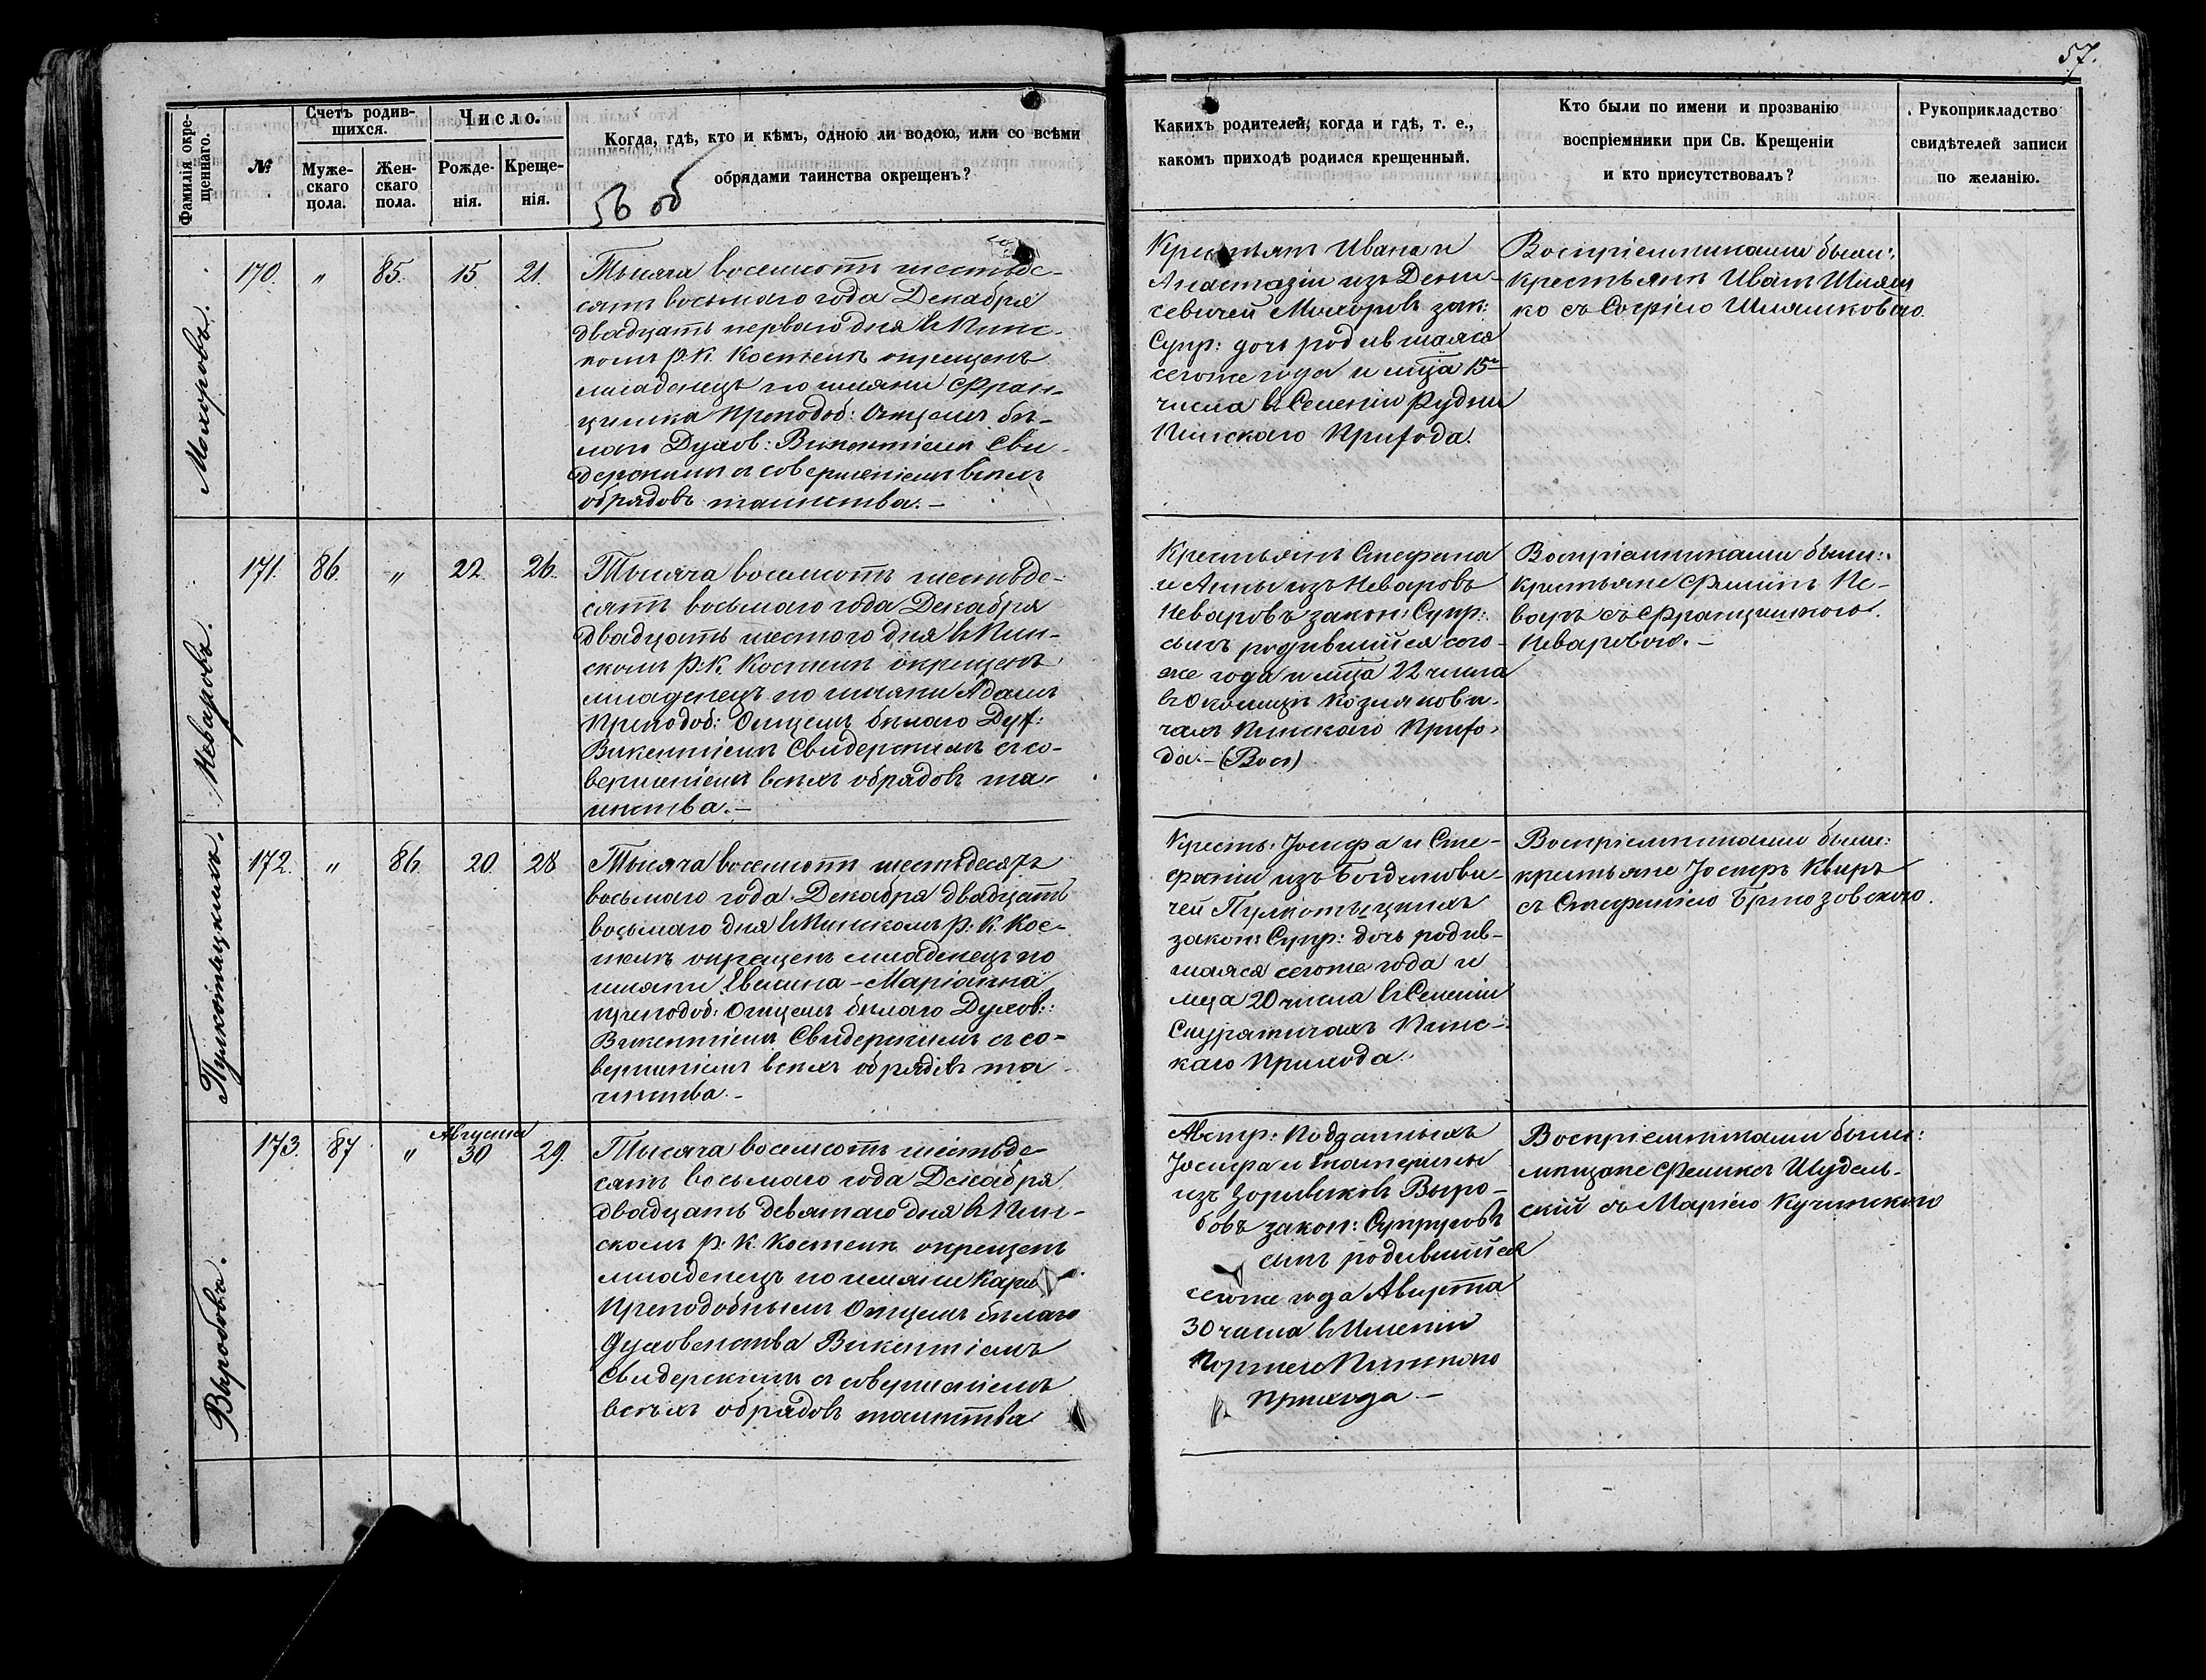 57.
Фамилія окре-
щеннаго.
№
Счетъ родив-
шихся.
Муже-
скаго
пола.
Жен-
скаго
пола.
Число.
Рожде-
нія.
Креще-
нія.
Когда, гдѣ, кто и кѣмъ, одною ли водою, или со всѣми
обрядами таинства окрещенъ?
56 об
Какихъ родителей, когда и гдѣ, т. е.,
какомъ приходѣ родился крещенный.
Кто были по имени и прозванію
воспріемники при Св. Крещеніи
и кто присутствовалъ?
Рукоприкладство
свидѣтелей записи
по желанію.
170. " 85. 15. 21.
Тысяча восемсотъ шестьде-
сятъ восьмаго года Декабря
двадцать перваго дня въ Пинс-
комъ Р. К. Костелѣ окрещенъ
младенецъ по имяни Фран-
цишка Преподоб: Отцемъ бѣ-
лаго Духов: Викентіемъ Сви-
дерскимъ съ совершеніемъ всѣхъ
обрядовъ таинства.-
Крестьянъ Ивана и
Анастазіи изъ Дени-
севичей зак:
Супр: дочь родившаяся
сегоже года и мца 15
числа въ Селеніи Рудни
Пинскаго Прихода.
Воспріемниками были:
крестьянинъ Иванъ Шляш
ко съ Софіею Шляшковою.
Неваровъ.
171. 86. " 22. 26.
Тысяча восемсотъ шестьде-
сятъ восьмаго года Декабря
двадцать шестого дня въ Пин-
скомъ Р. К. Костелѣ окрещенъ
младенецъ по имяни Адамъ
Преподоб: Отцемъ бѣлаго Дух:
Викентіемъ Свидерскимъ съ со-
вершеніемъ всѣхъ обрядовъ та-
инства.-
Крестьянъ Стефана
и Анны изъ Неваровъ
Неваровъ закон: Супр:
сынъ родившійся сего-
же года и мца 22 числа
въ Околицѣ Козлякови-
чахъ Пинскаго Прихо-
да.-
Воспріемниками были:
крестьяне Филипъ Не-
варъ съ Францишкою
Неваровою.-
Пулкотыцкихъ.
172. " 86. 20. 28
Тысяча восемсотъ шестьдесятъ
восьмаго года Декабря двадцать
восьмаго дня въ Пинскомъ Р. К. Кос-
телѣ окрещенъ младенецъ по
имяни Эвелина-Маріанна
преподоб: Отцемъ бѣлаго Духов:
Викентіемъ Свидерскимъ съ со-
вершеніемъ всѣхъ обрядовъ та
инства.-
Кресть: Іосифа и Сте-
фаніи изъ Богданови-
чей Пулкотыцкихъ
закон: Супр: дочь родив-
шаяся сегоже года и
мца 20 числа въ Селеніи
Пинс-
каго Прихода.
Воспріемниками были:
крестьяне Іосифъ Квиръ
съ Стефаніею Бржозовскою.
Выробовъ.
173. 87 " Августа 30 29.
Тысяча восемсотъ шестьде-
сятъ восьмаго года Декабря
двадцать девятаго дня въ Пин-
скомъ Р. К. Костелѣ окрещенъ
младенецъ по имяни Карл
Преподобнымъ Отцемъ бѣлаго
Духовенства Викентіемъ
Свидерскимъ съ совершеніемъ
всѣхъ обрядовъ таинства
Австр: Подданныхъ
Іосифа и Екатерины
изъ Выро-
бовъ закон: Супруговъ
сынъ родившійся
сегоже года Августа
30 числа въ Имѣніи
Пинскаго
Прихода-
Воспріемниками были:
мѣщане Феликсъ Шудель-
скій съ Маріею Кучинскою